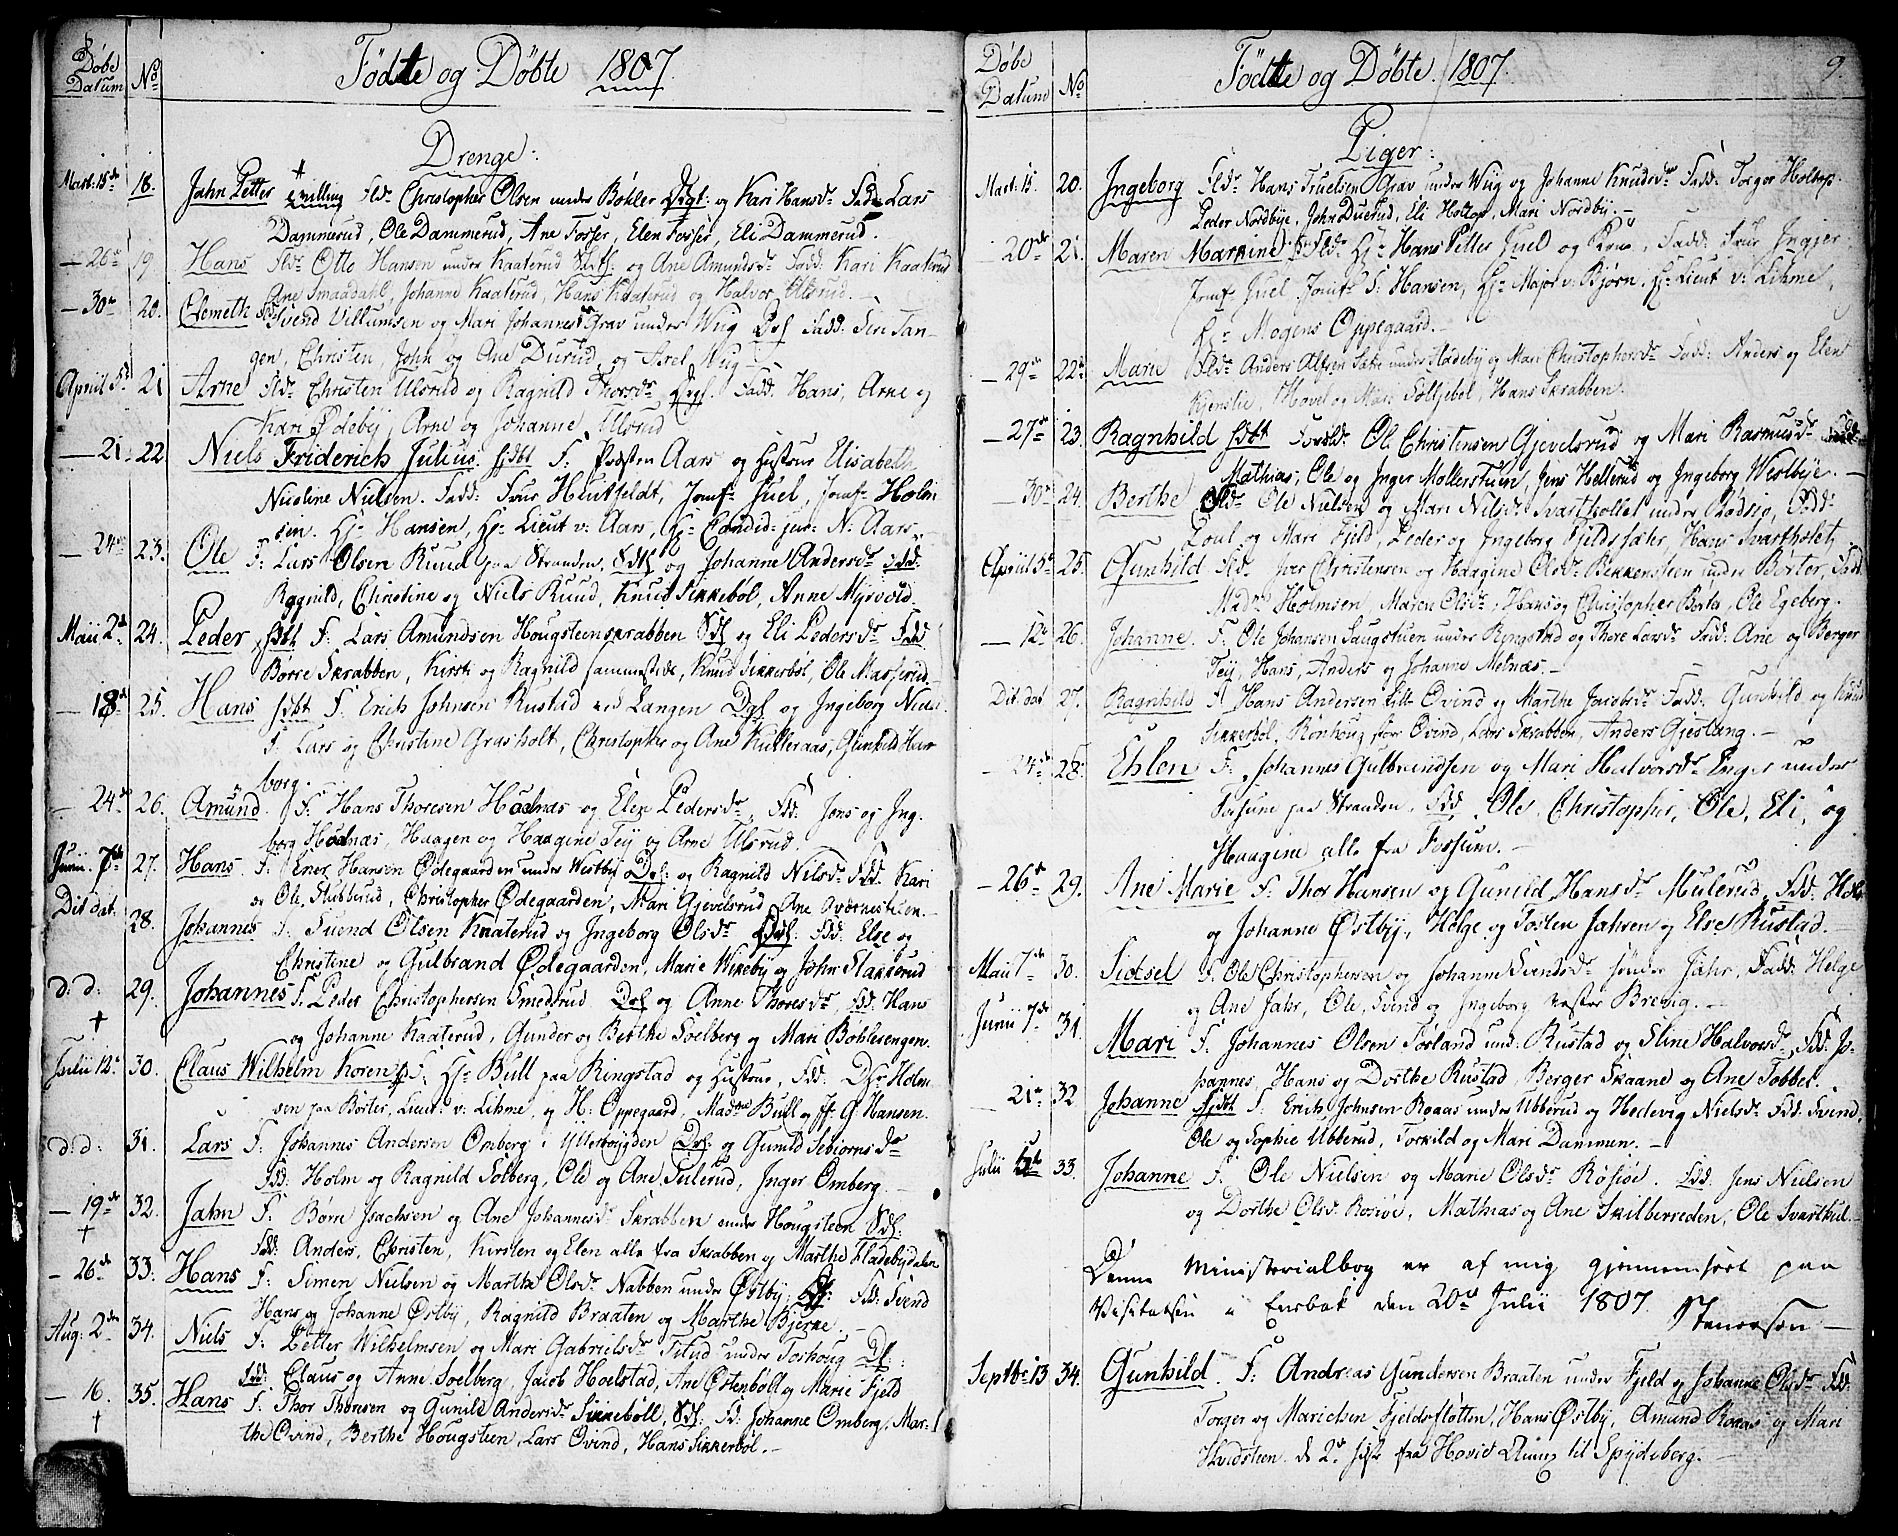 Døbe
Datum
No
Födte og Döbte 1807.
Drenge:
Mart: 15de 18. Jahn Petter tvilling Fldr Christopher Olsen under Böhler Dygt: og Kari Hansdr Fadd: Lars
Dammerud, Ole Dammerud, Ane Fosser, Elen Fosser, Eli Dammerud.
— 26de 19. Hans Fldr Otto Hansen under Kaaterud og Ane Amundsdr Fadd: Kari Kaaterud
Ane Smaadahl, Johanne Kaaterud, Hans Kaaterud og Halvor Ulsrud.
— 30te 20. Clemeth Svend Villumsen og Mari Johannesdr Grav under Wug Fadd: Siri Tan-
gen, Christen, John og Ane Durud, og Axel Wug
April 5te 21 Arne Fldr Christen Ulsrud og Ragnild Thorsdr Dygt. Fadd: Hans, Arne og
Kari Ødeby, Arne og Johanne Ulsrud
— 21: 22 Niels Friderich Julius hjdbt F: Præsten Aars og Hustrue Elisabeth
Nicoline Nielsen. Fadd: Frue Heutfeldt, Jomfr Juel, Jomfr Holm
sen. Hr Hansen, Hr Lieut v: Aars, Hr Candid: jur: N: Aars.
— 24de 23. Ole F: Lars Olsen Ruud paa Stranden, og Johanne Andersdr Fadd:
Ragnild, Christine og Niels Ruud, Knud Sikkebøl, Anne Myrvold.
Maii 2d 24. Peder hdbt F: Lars Amundsen Hougsteenskrabben og Eli Pedersdr Fadd
Børre Skrabben, Kirsti og Ragnild sammestæds, Knud Sikkerbøl, Ole Masserud.
— 18de 25. Hans hjdbt F: Erich Johnsen Rustad ved Langen og Ingeborg Niels
F: Lars og Christine Grasholt, Christopher og Ane Kulleraas, Gunhild Haar
borg.
— 24de 26. Amund. F: Hans Thoresen Hodnæs og Elen Pedersdr, Fdd: Jens og Ing-
borg Hodnæs, Haagen og Haagine Tey og Arne Ulsrud.
Junii 7de 27. Hans. F: Ener Hansen Ødegaarden under Westby og Ragnild Nilsdr Fdd: Kari
og Ole Stubberud, Christopher Ødegaarden, Mari Gjevelsrud, Ane Qværnestuen.
Dit dat: 28. Johannes F: Svend Olsen Kaaterud og Ingeborg Olsdr Fdd: Else og
Christine og Gulbrand Ødegaarden, Marie Wikeby og John Slakkerud
d: d: 29. Johannes F: Peder Christophersen Smedsrud og Anne Thoresdr, Fdd: Hans
og Johanne Kaaterud, Gunder og Berthe Soelberg og Mari Bohlerengen.
Julii 12te 30. Claus Wilhelm Koren F: Hr Bull paa Ringstad og Hustrue, Fdd: Dhr Holm
sen paa Børter, Lieut: v: Lihme, og H: Oppegaard, Madme Bull og Jf: G Hansen.
d: d: 31. Lars F: Johannes Andersen Omberg i Ytterbøigden og Gunild Sebiørnsdr
Fdd: Holm og Ragnild Solberg, Ole og Ane Seilerud, Inger Omberg
— 19de 32. Jahn F: Børn Isachsen og Ane Johannesdr Skrabben under Hougsteen
Fdd: Anders, Christen, Kirsten og Elen alle fra Skrabben og Marthe Fladebydalen
— 26de 33. Hans F: Simen Nielsen og Marthe Olsdr Nabben under Østby. Fdd: Svend
Hans og Johanne Østby, Ragnild Braaten og Marthe Bjerke.
Aug: 2den 34. Niels F: Petter Wilhelmsen og Mari Gabrielsdr under Toshoug
Fdd: Claus og Anne Soelberg, Jacob Hoelstad, Ane Østenboll og Marie Fjeld
— 16. 35. Hans F: Thor Thorsen og Gunild Andersdr Sikkeböll, Fd: Johanne Omberg, Mar-
the Øvind, Berthe Hougsteen, Lars Øvind, Hans Sikkerbøl.
Døbe
Datum
No
Födte og Döbte. 1807.
9.
Piger:
Mart: 15. 20. Ingeborg Fldr Hans Truelsen Grav under Wug og Johanne Knudsdr Fadd: Torger Holtop.
Peder Nordbye, John Duerud, Eli Holtop, Mari Nordby.
— 20de 21. Maren Markine Fldr Hr Hans Petter Juel og Kone, Fadd: Frue Ingjer
Jomfr Juel, Jomfr S: Hansen, Hr Major v: Bjørn, Hr Lieut v: Lihme,
Hr Mogens Oppegaard.
— 29de 22. Marie Fldr Anders Alfsen Sætre under Fladeby og Mari Christophersdr Fadd: Anders og Elen
Kjenslie, Hovel og Mari Søltjebøl, Hans Skrabben.
— 27de 23. Ragnhild hdbt Forældr Ole Christensen Gjevelsrud og Mari Rasmusdr
Mathias, Ole og Inger Mollerstuen, Jens Hellerud og Ingeborg Westbye.
— 30te 24. Berthe Fldr Ole Nielsen og Mari Nilsdr Svartholtet under Rødssiø, Fadd:
Poul og Mari Fjeld, Peder og Ingeborg Fjeldssæter, Hans Svartholet.
Apriil 5te 25. Gunhild Fld. Iver Christensen og Haagine Olsdr Bekkensteen under Børter, Fadd:
Madme Holmsen, Maren Olsdr, Hans og Christopher Børter, Ole Egeberg.
— 12te 26. Johanne. F. Ole Johansen Haugstuen under Ringstad og Thore Larsdr Fadd: Ane og Berger
Teij, Hans, Anders og Johanne Melnæs.
Dit dat 27. Ragnhild F. Hans Andersen Lille Øvind og Marthe Jacobsdr Fadd: Gunhild og Knud
Sikkerbøl, Rönnoug store Øvind, Lars Skrabben, Anders Gjestang.
— 24de 28. Ehlen F: Johannes Gulbrandsen og Mari Halvorsdr Enger under
Fossum paa Stranden. Fdd Ole, Christopher, Ole, Eli, og
Haagine alle fra Fossum.
— 26de 29. Ane Marie F: Thor Hansen og Gunild Hansdr Mulerud, Fdd: Helle
og Johanne Østby, Helge og Tosten Jahren og Else Rustad.
Maii 7de 30. Sidsel F: Ole Christophersen og Johanne Svendsdr sønder Jahr, Fadd: Helge
og Ane Jahr, Ole, Svend og Ingeborg vester Brevig.
Junii 7de 31. Mari F: Johannes Olsen Sørland und: Rustad og Eline Halvorsdr, Fdd: Jo-
hannes, Hans og Dorthe Rustad, Berger Skaane og Ane Tobbel.
— 21de 32 Johanne hjdbt F: Erich Johnsen Roaas under Ubberud og Hedevig Nielsdr Fdd: Svend,
Ole og Sophie Ubberud, Torkild og Mari Dammen.
Julii 5te 33. Johanne F: Ole Nielsen og Marie Olsdr Røssiøe. Fdd: Jens Nielsen
og Dorthe Olsdr Rosiøe, Mathias og Ane Skilberreden, Ole Svarthul.
Denne Ministerialbog er af mig gjennemseet paa
Visitatsen i Enebak den 20de Julii 1807. Stenersen
Septbr 13 34. Gunhild. F: Andreas Gundersen Braaten under Fjeld og Johanne Olsdr Fdd:
Torger og Marichen Fjeldsfløtten, Hans Østby, Amund Roaas og Mari
Hvidsteen. de 2de sidste fra Hovid til Spydeberg.